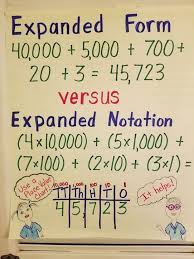 Expanded Form
40,000 + 5,000 + 700 +
20 + 3 = 45,723
versus
Expanded Notation
(4x10,000) + (5x1,000) +
(7x100) + (2x10) + (3x1) =
Use a
Place Value
Chart!
It helps!
10,000 1,000 100 10 1
TTh Th H T O
4 5 7 2 3